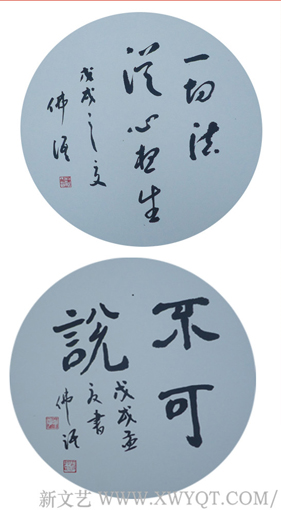 一切法
從心想生
戊戌之夏
佛语
不可
說
戊戌孟
夏書
佛语
新文艺 WWW.XWYQT.COM/